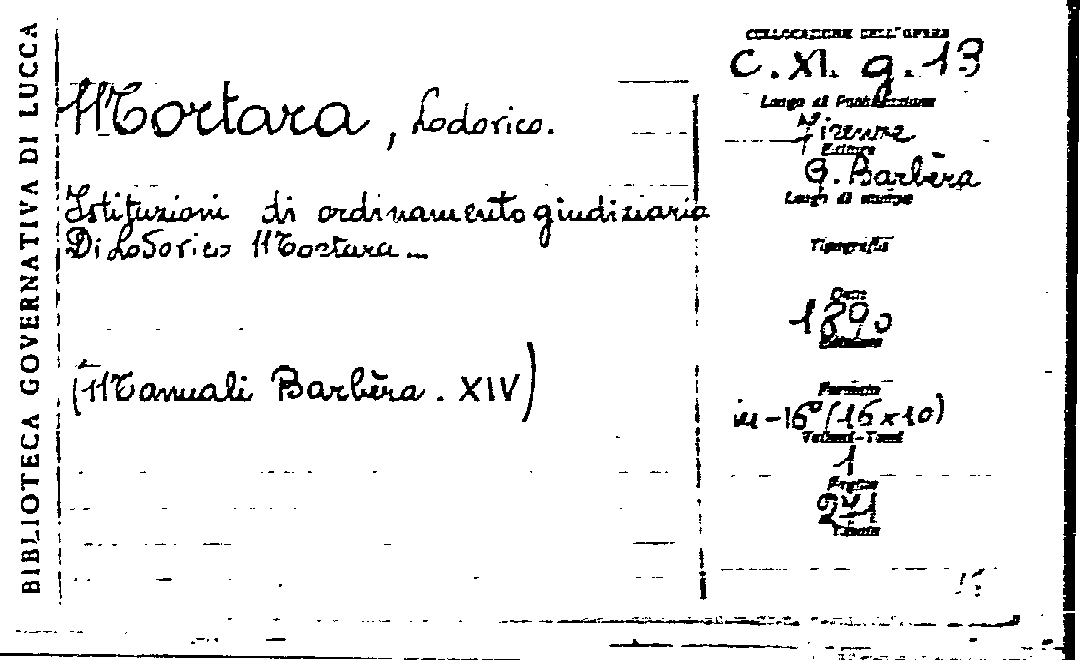 BIBLIOTECA GOVERNATIVA DI LUCCA
Mortara, Lodovico.
Istituzioni di ordinamento giudiziario
Di Lodovico Mortara...
(Manuali Barbèra. XIV)
COLLOCAZIONE DELL'OPERA
C. XI. g. 13
Luogo di Pubblicazione
Firenze
Editore
G. Barbèra
Luogo di stampa
Tipografia
Data
1890
Edizione
Formato
in-16° (16x10)
Volumi-Tomi
1
Pagine
271
Tavole